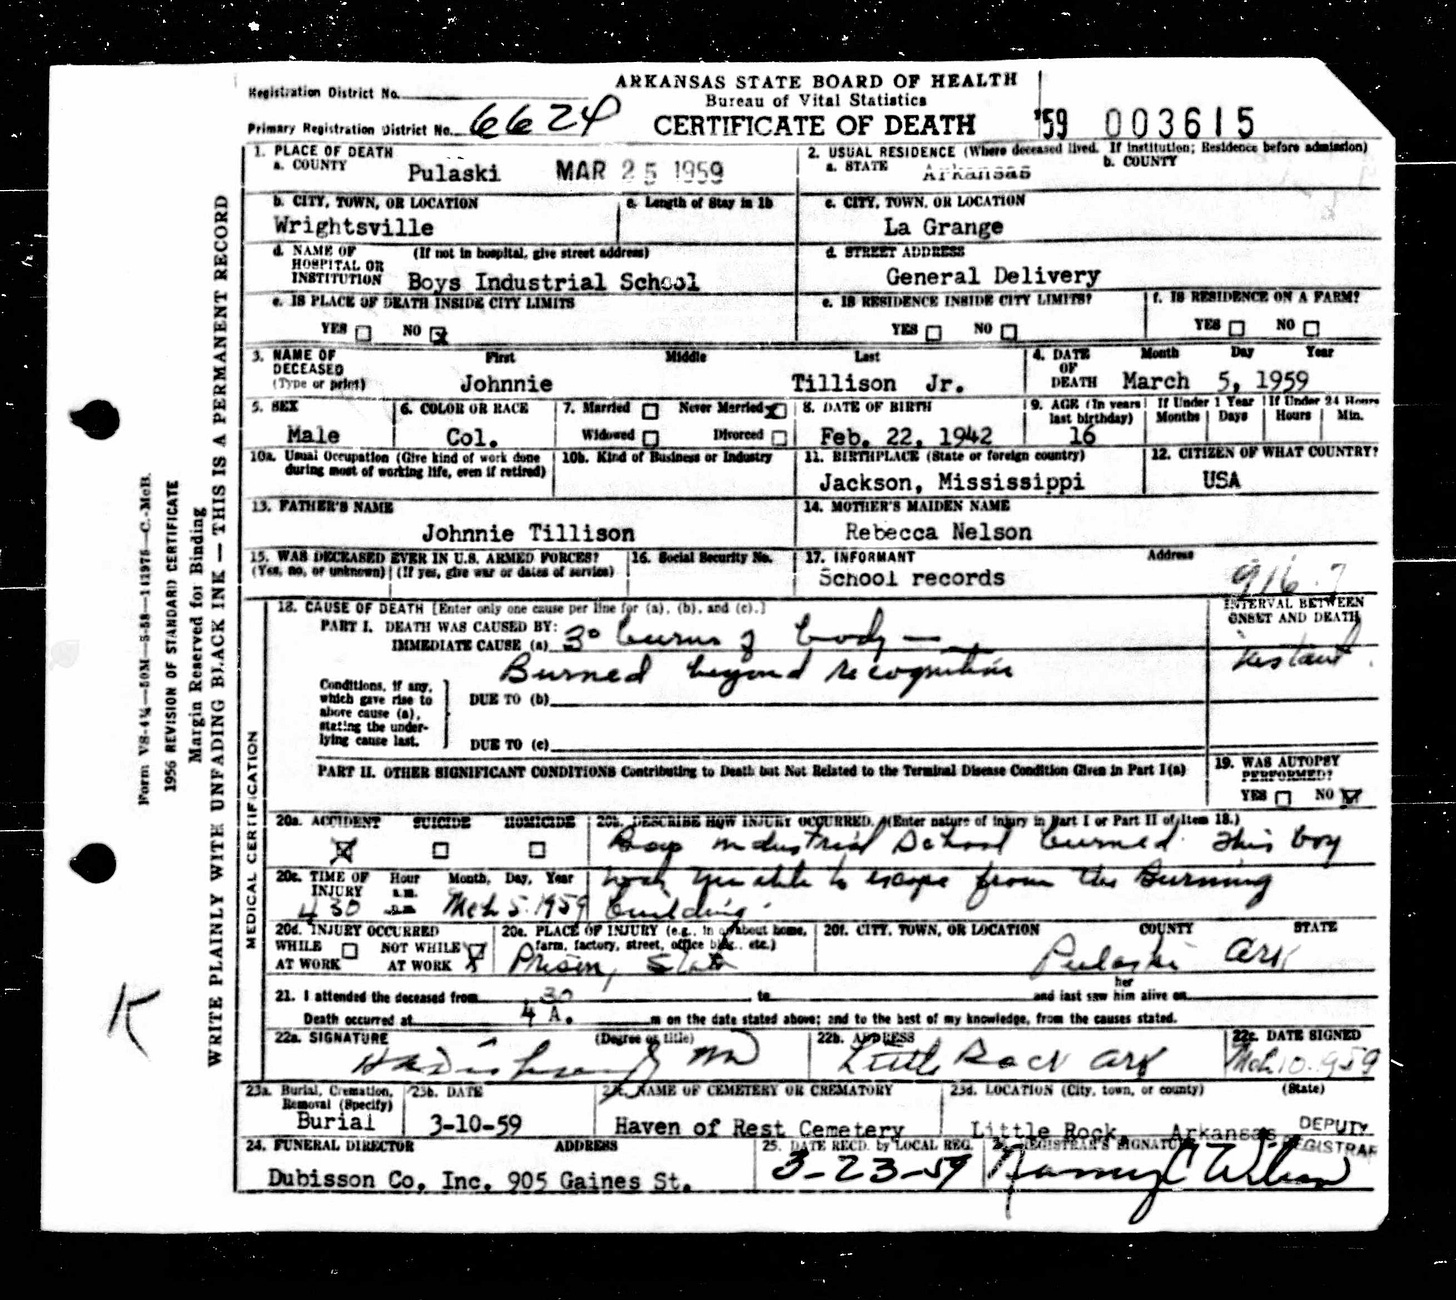 ARKANSAS STATE BOARD OF HEALTH
Bureau of Vital Statistics
CERTIFICATE OF DEATH
Registration District No.
Primary Registration District No. 6624
'59 003615
1. PLACE OF DEATH
a. COUNTY Pulaski MAR 25 1959
2. USUAL RESIDENCE (Where deceased lived. If institution; Residence before admission)
a. STATE Arkansas b. COUNTY
b. CITY, TOWN, OR LOCATION
Wrightsville
c. Length of Stay in 1b
c. CITY, TOWN, OR LOCATION
La Grange
d. NAME OF HOSPITAL OR INSTITUTION (If not in hospital, give street address)
Boys Industrial School
d. STREET ADDRESS
General Delivery
e. IS PLACE OF DEATH INSIDE CITY LIMITS
YES NO X
e. IS RESIDENCE INSIDE CITY LIMITS?
YES NO
f. IS RESIDENCE ON A FARM?
YES NO
3. NAME OF DECEASED (Type or print) First Middle Last
Johnnie Tillison Jr.
4. DATE OF DEATH Month Day Year
March 5, 1959
5. SEX
Male
6. COLOR OR RACE
Col.
7. Married Never Married X
Widowed Divorced
8. DATE OF BIRTH
Feb. 22, 1942
9. AGE (In years last birthday) If Under 1 Year If Under 24 Hours
Months Days Hours Min.
16
10a. Usual Occupation (Give kind of work done during most of working life, even if retired)
10b. Kind of Business or Industry
11. BIRTHPLACE (State or foreign country)
Jackson, Mississippi
12. CITIZEN OF WHAT COUNTRY?
USA
13. FATHER'S NAME
Johnnie Tillison
14. MOTHER'S MAIDEN NAME
Rebecca Nelson
15. WAS DECEASED EVER IN U.S. ARMED FORCES?
(Yes, no, or unknown) (If yes, give war or dates of service)
16. Social Security No.
17. INFORMANT Address
School records
916.7
18. CAUSE OF DEATH [Enter only one cause per line for (a), (b), and (c).]
PART I. DEATH WAS CAUSED BY:
IMMEDIATE CAUSE (a) 3° burns of body —
Burned beyond recognition
INTERVAL BETWEEN ONSET AND DEATH
instant.
Conditions, if any, which gave rise to above cause (a), stating the underlying cause last.
DUE TO (b)
DUE TO (c)
PART II. OTHER SIGNIFICANT CONDITIONS Contributing to Death but Not Related to the Terminal Disease Condition Given in Part I(a)
19. WAS AUTOPSY PERFORMED?
YES NO X
20a. ACCIDENT SUICIDE HOMICIDE
X
20b. DESCRIBE HOW INJURY OCCURRED. (Enter nature of injury in Part I or Part II of Item 18.)
Boys industrial School burned. This boy
was unable to escape from the Burning
building.
20c. TIME OF INJURY Hour a.m. p.m. Month, Day, Year
4 30 Mch 5. 1959
20d. INJURY OCCURRED
WHILE AT WORK NOT WHILE AT WORK X
20e. PLACE OF INJURY (e.g., in or about home, farm, factory, street, office bldg., etc.)
Prison, State
20f. CITY, TOWN, OR LOCATION COUNTY STATE
Pulaski Ark
21. I attended the deceased from , to and last saw her him alive on
Death occurred at 4 30 A. m on the date stated above; and to the best of my knowledge, from the causes stated.
22a. SIGNATURE (Degree or title)
MD
22b. ADDRESS
Little Rock Ark
22c. DATE SIGNED
Mch 10. 959
23a. Burial, Cremation, Removal (Specify)
Burial
23b. DATE
3-10-59
23c. NAME OF CEMETERY OR CREMATORY
Haven of Rest Cemetery
23d. LOCATION (City, town, or county) (State)
Little Rock, Arkansas
24. FUNERAL DIRECTOR ADDRESS
Dubisson Co. Inc. 905 Gaines St.
25. DATE RECD. by LOCAL REG.
3-23-59
26. REGISTRAR'S SIGNATURE
DEPUTY REGISTRAR
MEDICAL CERTIFICATION
WRITE PLAINLY WITH UNFADING BLACK INK — THIS IS A PERMANENT RECORD
Margin Reserved for Binding
1956 REVISION OF STANDARD CERTIFICATE
K